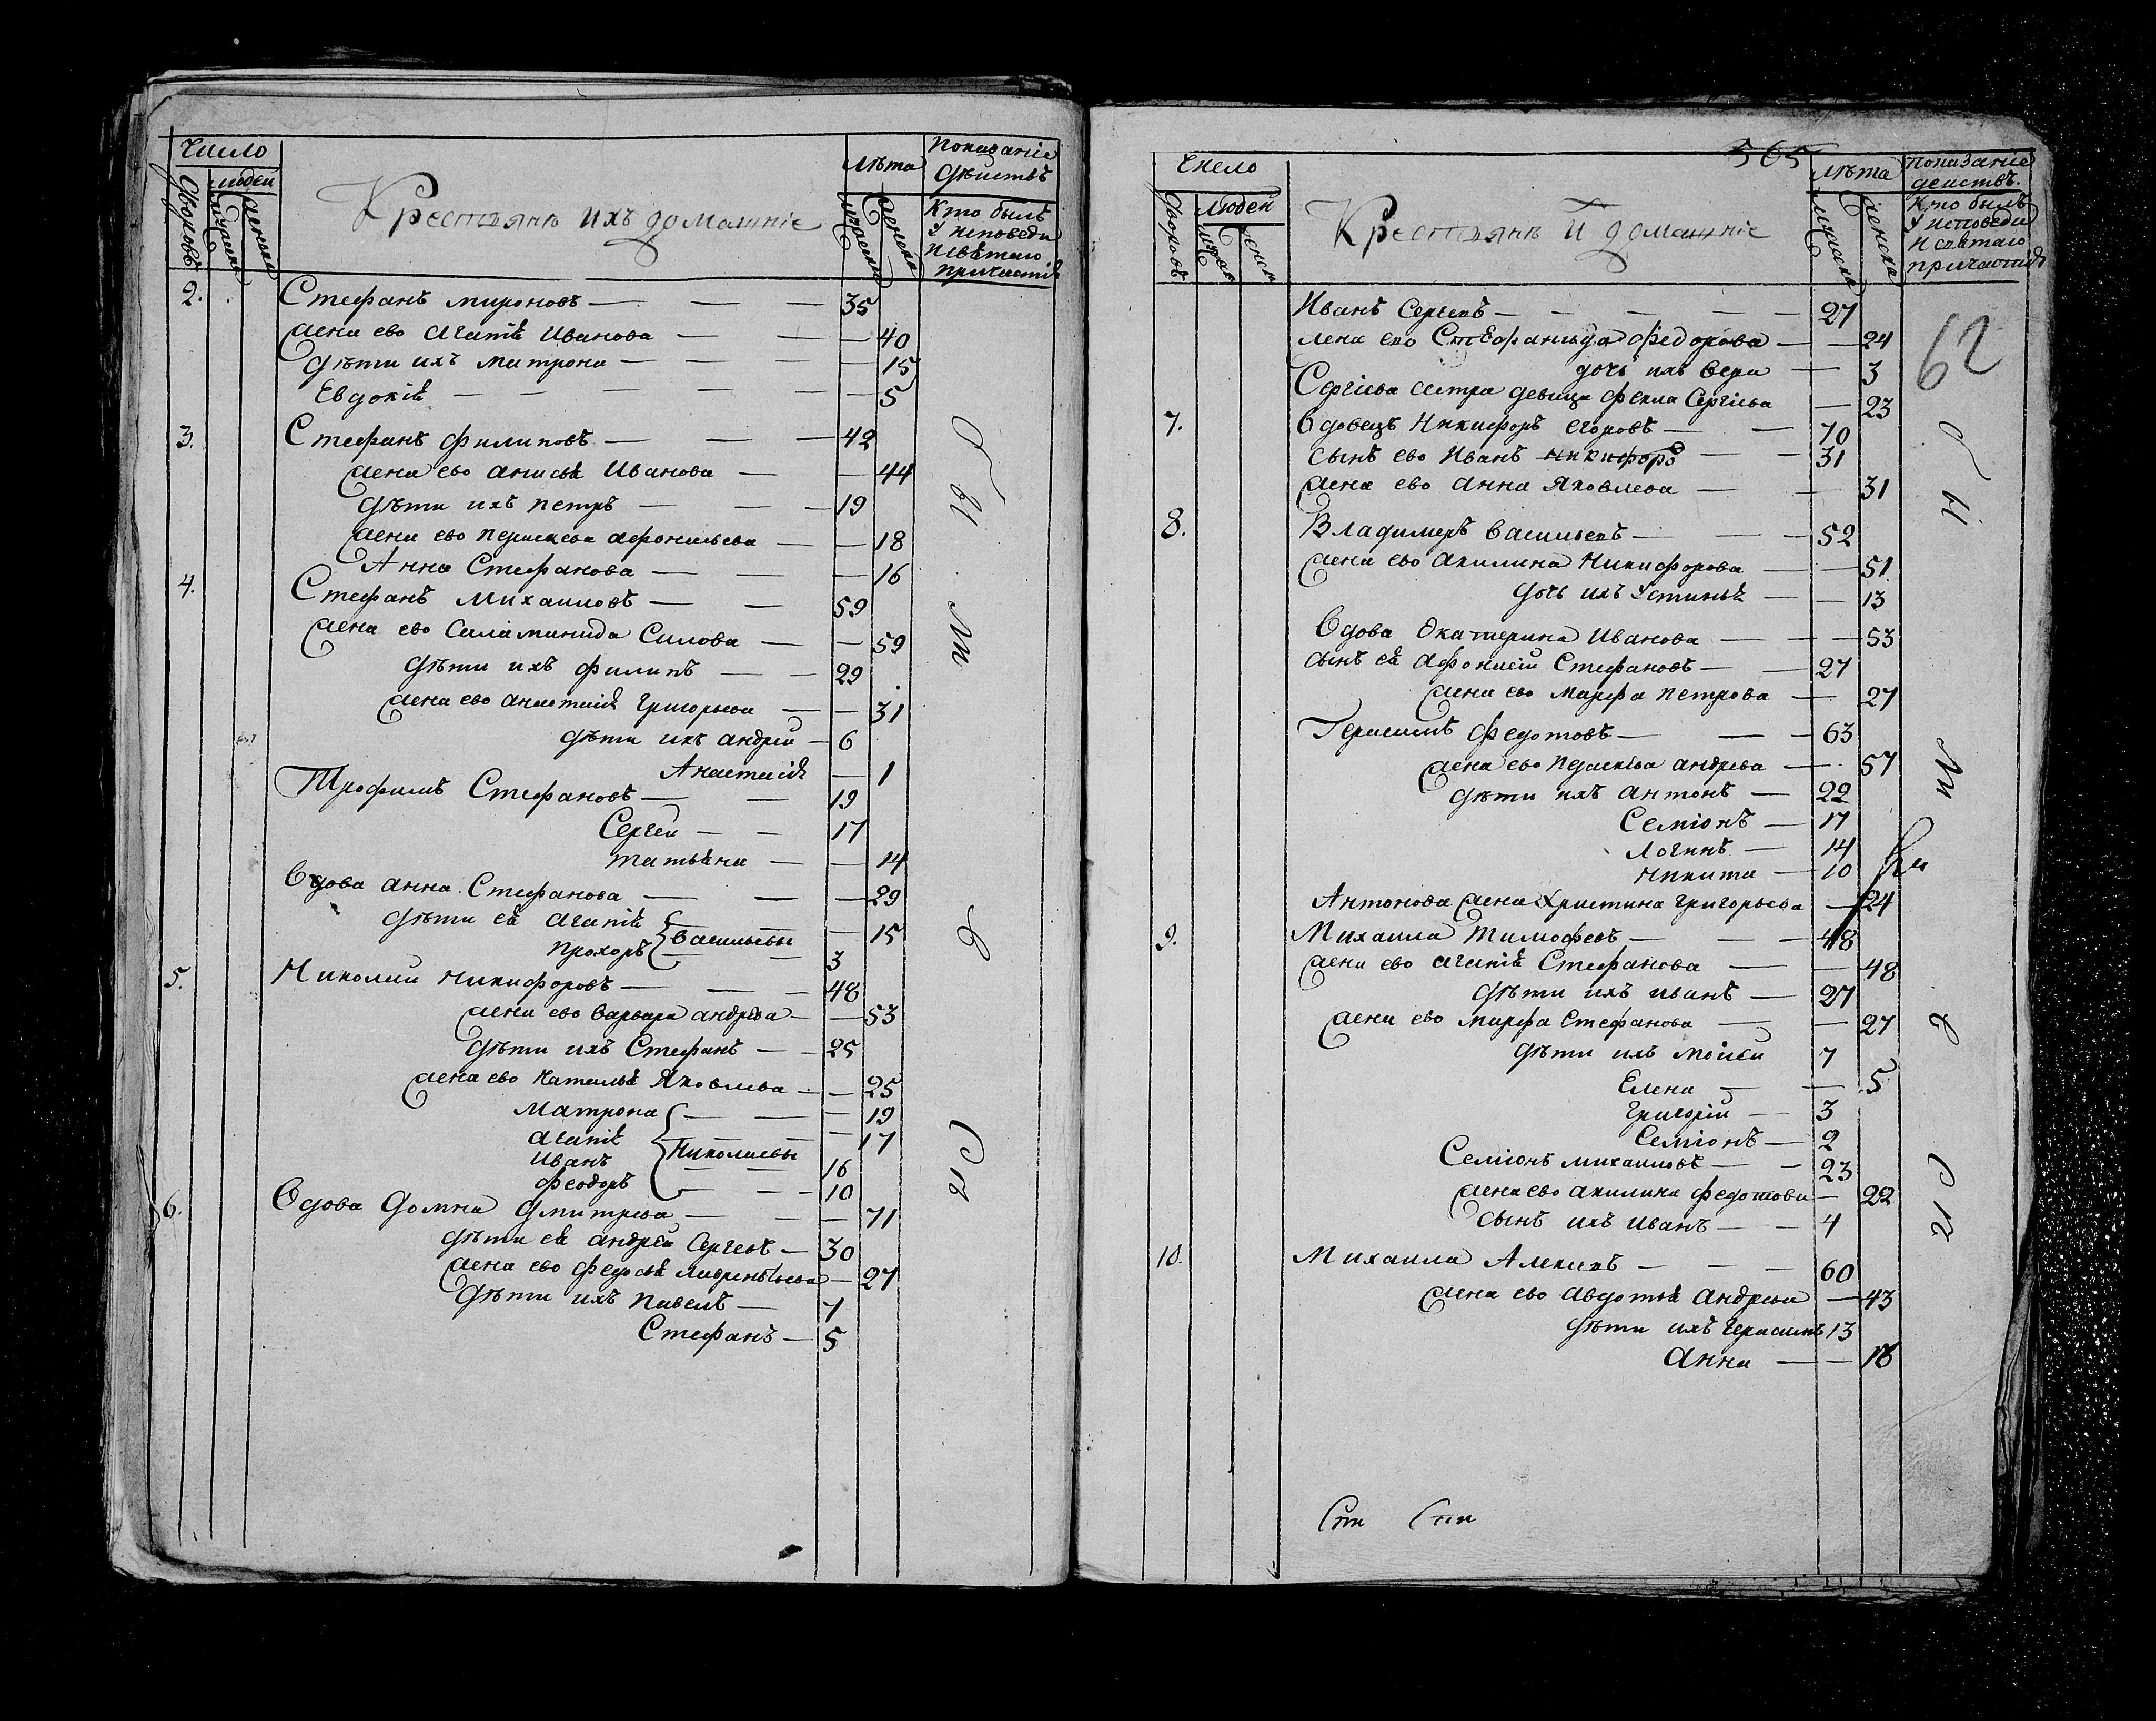 Число
людей
дворовъ
мужеска
женска
Крестьянъ ихъ домашніе
лѣта
мужеска
женска
Показаніе
дѣиствъ
Кто былъ
у исповеди
и свѣтаго
причастия
2. Стефанъ мироновъ — 35
жена ево агапіѣ Иванова — 40
дѣти ихъ матрона — 15
Евдокіѣ — 5
3. Стефанъ филиповъ — 42
жена ево анисьѣ Иванова — 44
дѣти ихъ петръ — 19
жена ево пераскева афонасьева — 18
Анна Стефанова — 16
4. Стефанъ Михаиловъ — 59
жена ево Саламанида Силова — 59
дѣти ихъ филипъ — 29
жена ево анастасиѣ Григорьева — 31
дѣти ихъ андреи — 6
Анастасиѣ — 1
Трофимъ Стефановъ — 19
Сергеи — 17
татьѣна — 14
Вдова анна Стефанова — 29
дѣти еѣ агапіѣ — 15
Васильевы
прохоръ — 3
5. Николаи Никифоровъ — 48
жена ево Варвара андрѣва — 53
дѣти ихъ Стефанъ — 25
жена ево Натальѣ Яковлева — 25
Матрона — 19
агапіѣ — 17
Николаевы
Иванъ — 16
феодоръ — 10
6. Вдова Домна Дмитрева — 71
дѣти еѣ андрѣи Сергевъ — 30
жена ево федосьѣ лаврентьева — 27
дѣти ихъ павелъ — 7
Стефанъ — 5
365
Чиело
людеи
дворовъ
мужес
женск
Крестьянъ и домашніе
лѣта
мужеска
женска
показаніе
деиствъ.
Кто былъ
у исповеди
и святаго
причастия
62
Иванъ Сергевъ — 27
жена ево Стефанида федорова — 24
дочь ихъ вера — 3
Сергіева сестра девица фекла Сергіева — 23
7. Вдовецъ Никифоръ егоровъ — 70
сынъ ево Иванъ никифоро — 31
жена ево анна Яковлева — 31
8. Владимеръ васильевъ — 52
жена ево акилина Никифорова — 51
дочь ихъ устиньѣ — 13
Вдова Екатерина Иванова — 53
сынъ еѣ афонасіи Стефановъ — 27
жена ево марфа петрова — 27
Герасимъ федотовъ — 63
жена ево пераскева андрева — 57
дѣти ихъ антонъ — 22
Семіонъ — 17
Логинъ — 14
никита — 10
Антонова жена Христина григорьева — 24
9. Михаила Тимофевъ — 48
жена ево агапіѣ Стефанова — 48
дѣти ихъ иванъ — 27
жена ево марфа Стефанова — 27
дѣти ихъ моисеи 7
Елена — 5
григории — 3
Семіонъ — 2
Семіонъ михаиловъ — 23
жена ево акилина федотова — 22
сынъ ихъ иванъ — 4
10. Михаила Алекевъ — 60
жена ево авдотьѣ Андрева — 43
дѣти ихъ герасимъ 13
анна — 18